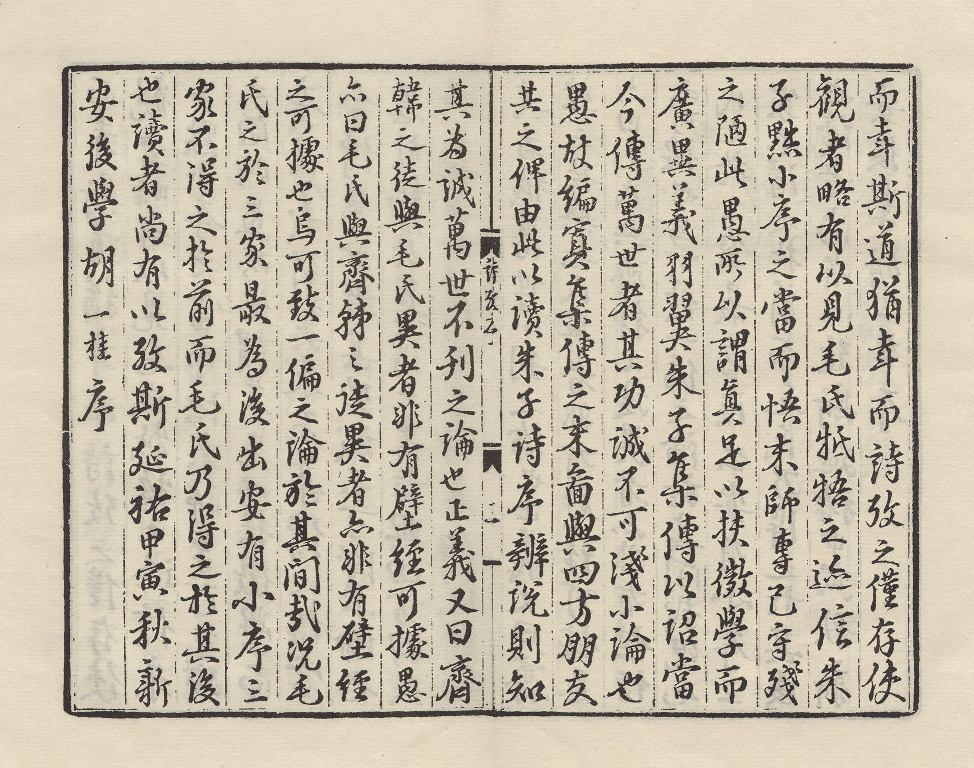 而幸斯道猶幸而詩攷之僅存使
觀者略有以見毛氏牴牾之迹信朱
子黜小序之當而悟末師專己守殘
之陋此愚所以謂真足以扶微學而
廣異義羽翼朱子集傳以詔當
今傳萬世者其功誠不可淺小論也
愚故編寘集傳之末啚與四方朋友
共之俾由此以讀朱子詩序辨說則知
詩攷序
二
其為誠萬世不刋之論也正義又曰齊
韓之徒與毛氏異者非有壁經可據愚
亦曰毛氏與齊韓之徒異者亦非有壁經
之可據也烏可致一偏之論於其間哉况毛
氏之於三家最為後出安有小序三
家不得之於前而毛氏乃得之於其後
也讀者尚有以攷斯延祐甲寅秋新
安後學胡一桂序